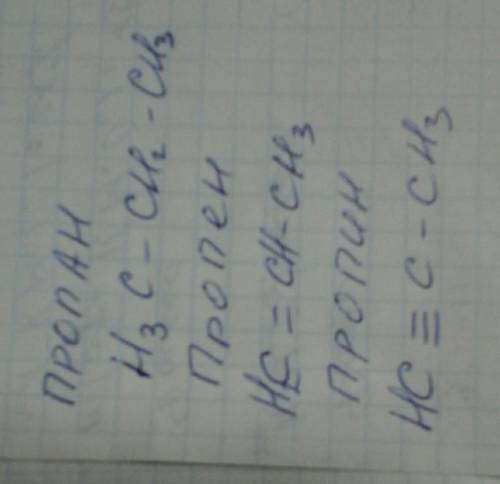 ПРОПАН
H₃C-CH₂-CH₃
ПРОПеН
H₂C=CH-CH₃
ПРОПИН
HC≡C-CH₃